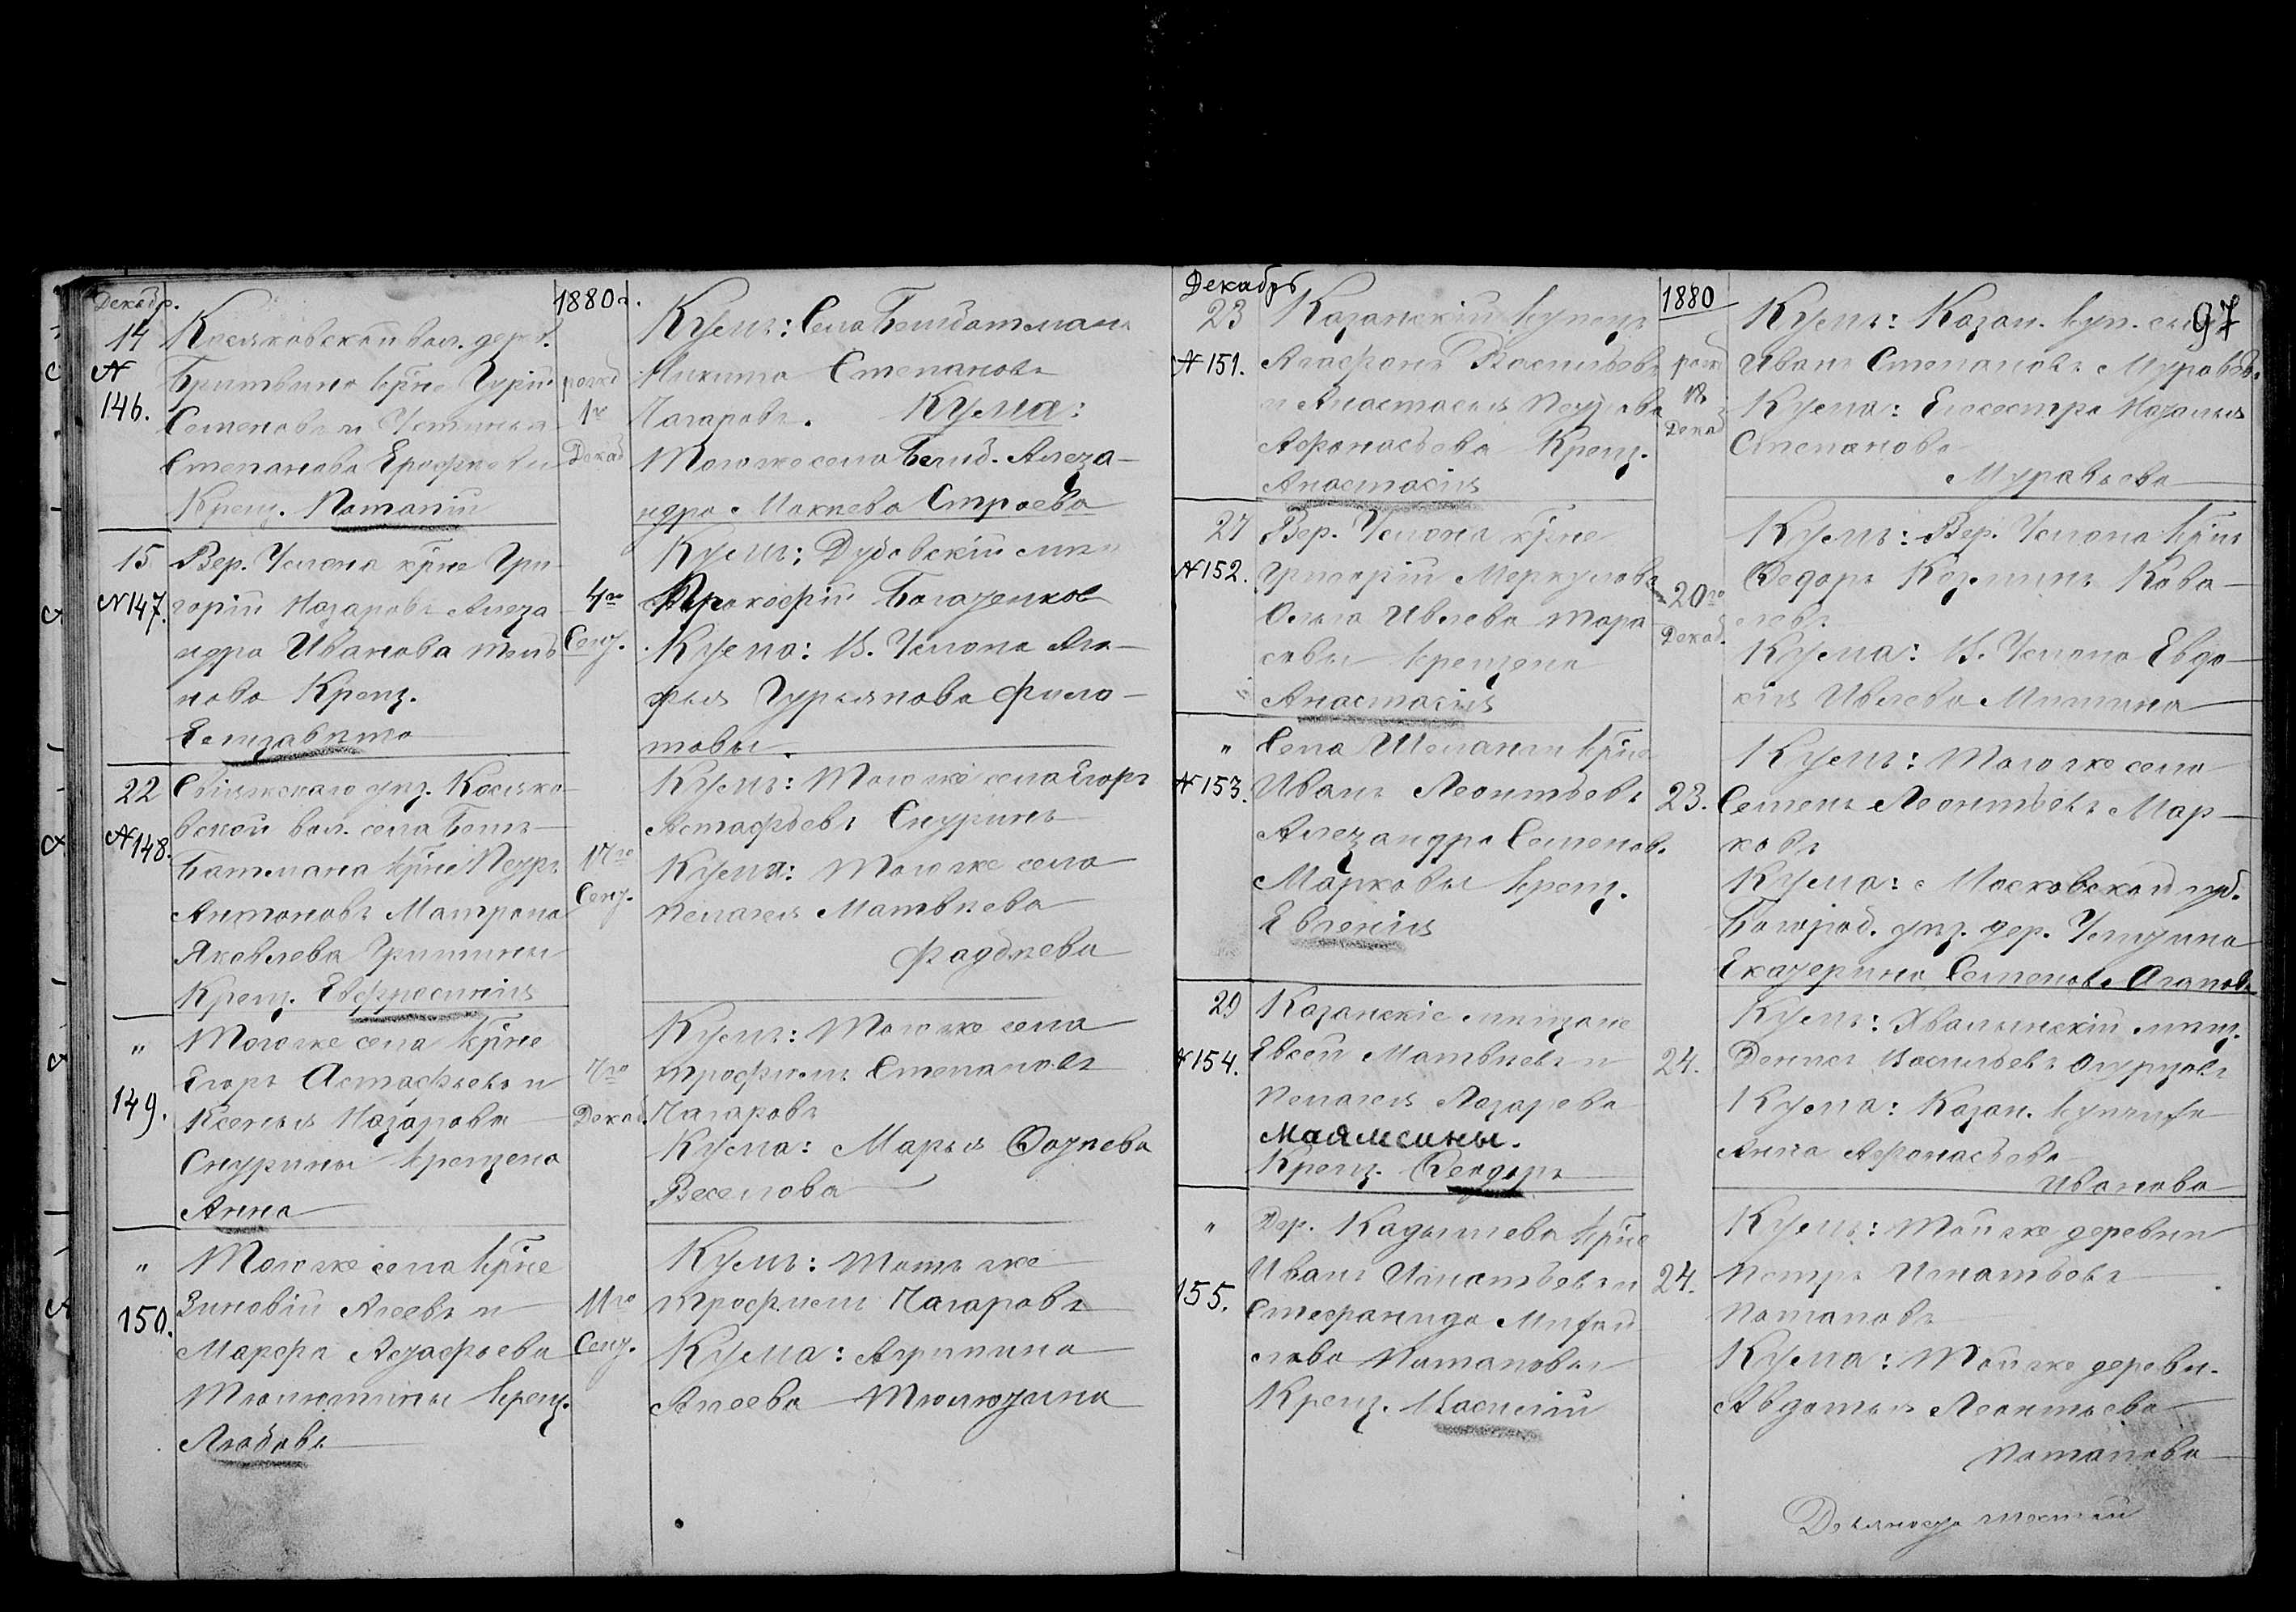 Декабр.
1880 г.
14
Косяковской вол. дерев.
№
146.
Бритвино кр̃не Гурій
Семеновъ и Устинья
Степанова Ерофѣевы
Крещ. Потапій
рожд
1го
Декаб
Кумъ: Села Бишбатмана
Никита Степановъ
Чагаровъ. Кума:
Того же села Бишб. Алекса-
ндра Мокѣева Строева
15
№147.
Вер. Услона кр̃не Гри-
горій Назаровъ Алекса
ндра Иванова
нова Крещ.
Елизавѣта
4го
Сент.
Кумъ: Дубовскій мѣщ
Прокофій
Кума: В. Услона Ага-
фья Гурьянова Фила-
товы
22
№148.
Свіяжскаго уѣз. Косяко-
вской вол. села Бишъ-
Батмана кр̃не Петръ
Антоновъ Матрона
Яковлева Гришины
Крещ. Евфросинія
17го
Сент.
Кумъ: Того же села Егоръ
Астафьевъ Снуринъ
Кума: Того же села
Пелагея Матвѣева
Фадѣева
"
149.
Того же села кр̃не
Егоръ Астафьевъ и
Ксенья Назарова
Снурины крещена
Анна
7го
Декаб.
Кумъ: Того же села
Трофимъ Степановъ
Чагаровъ
Кума: Марья Фадѣева
Веселова
"
150.
Того же села кр̃не
Зиновій Алеевъ и
Марфа Астафьева
Тюлютины крещ.
Любовь
11го
Сент.
Кумъ: Тотъ же
Трофимъ Чагаровъ
Кума: Агрипина
Алеева Тюлютина
Декабрь
1880
97
23
№151.
Казанскій купецъ
Агафонъ Васильевъ
и Анастасья Петрова
Афонасьева Крещ.
Анастасія
рожд
18
Декаб
Кумъ: Казан. куп. сынъ
Иванъ Степановъ Муравьевъ
Кума: Его сестра Наталья
Степанова
Муравьева
27
№152.
Вер. Услона кр̃не
Григорій Меркулова
Ольга Ивлева Тара
совы крещена
Анастасія
20го
Декаб.
Кумъ: Вер. Услона кр̃нъ
Федоръ Козминъ Кова-
левъ
Кума: В. Услона Евдо-
кія Ивлева Мишина
"
№153.
Села Шеланги кр̃не
Иванъ Леонтьевъ
Александра Семенов.
Марковы крещ.
Евгенія
23.
Кумъ: Того же села
Семенъ Леонтьевъ Мар-
ковъ
Кума: Московской губ.
Богород. уѣз. дер.
Екатерина Семенова Агапова
29
№154.
Казанскіе мѣщане
Евсей Матвѣевъ и
Пелагея Лазарева
Маямсины.
Крещ. Феодоръ
24.
Кумъ: Хвалынскій мѣщ.
Денисъ Васильевъ Огурцовъ
Кума: Казан. купчиха
Анна Афонасьева
Иванова
"
155.
Дер. Кадышева кр̃не
Иванъ Игнатьевъ и
Стефанида Михай
лова Потаповы
Крещ. Василій
24.
Кумъ: Той же деревни
Петръ Игнатьевъ
Потаповъ
Кума: Той же деревн.
Авдотья Леонтьева
Потапова